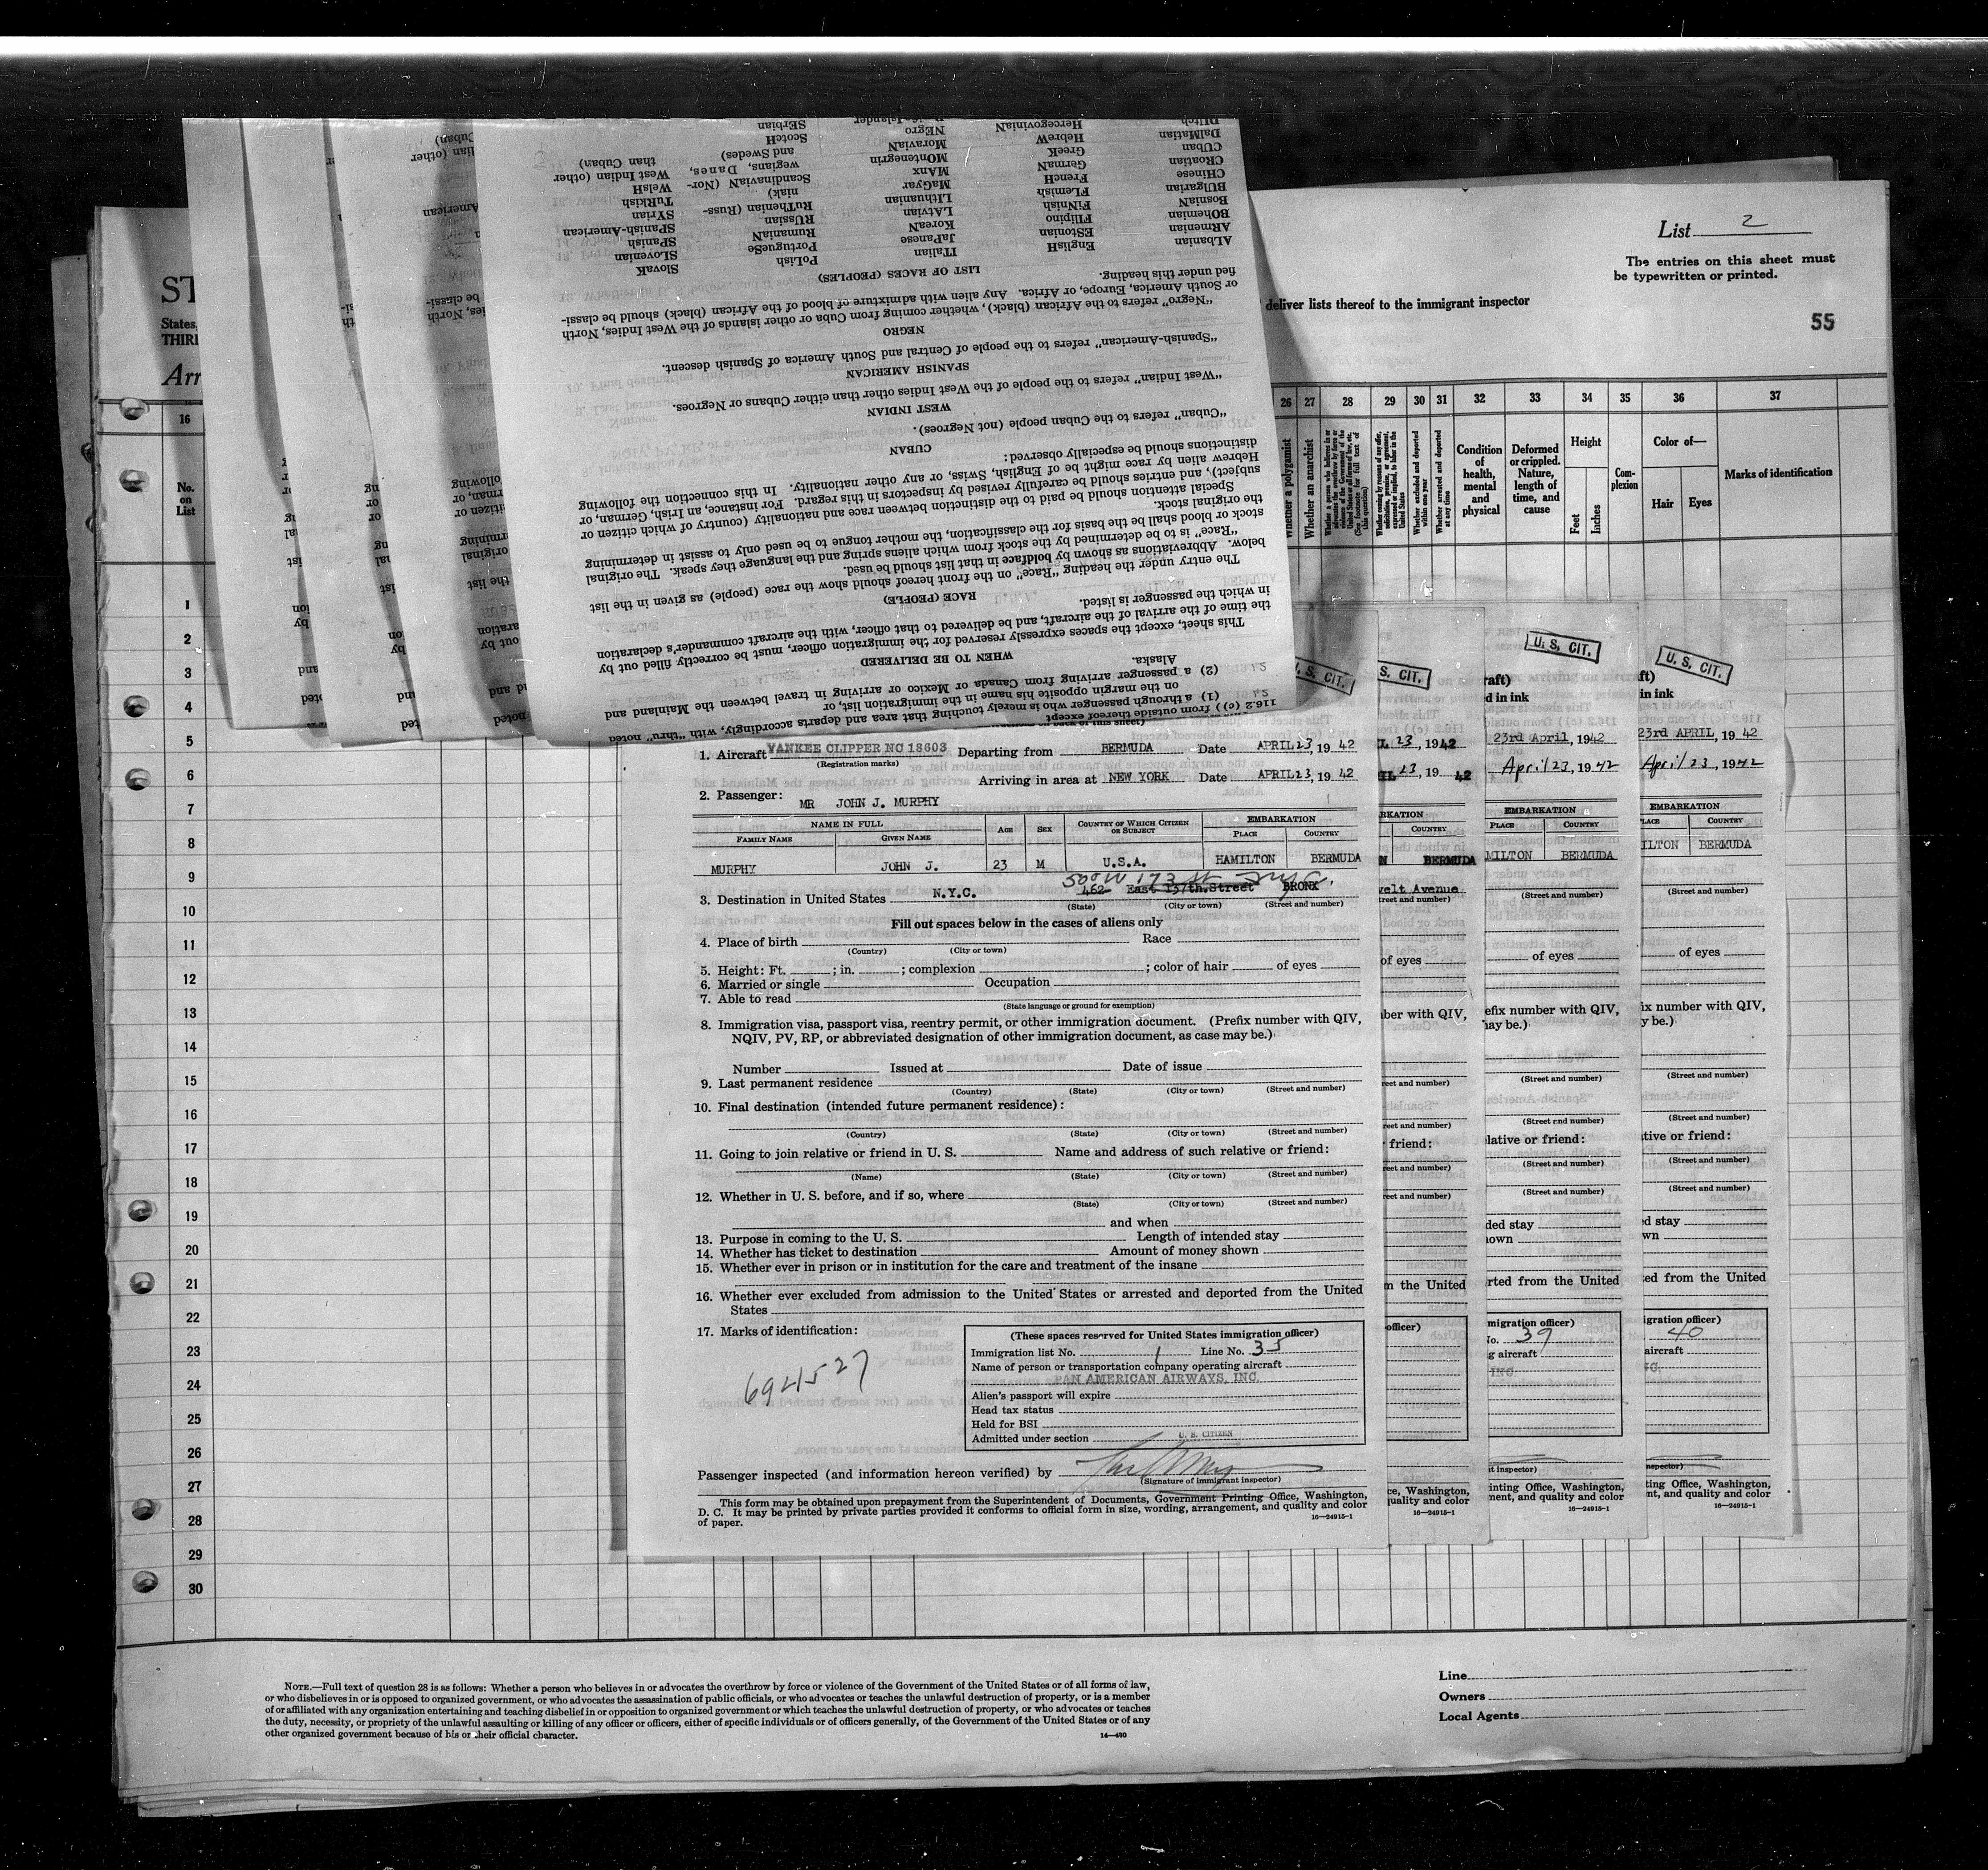 List 2
The entries on this sheet must
be typewritten or printed.
deliver lists thereof to the immigrant inspector
55
ST
States,
THIRD
Arr
DUtch HercegoviniaN SErbian
DalMatian HebreW NEgro ScotcH
CUban GreeK MoraviaN and Swedes) than Cuban)
CRoatian GermaN MOntenegrin wegians, Danes, West Indian (other
CHinese FrencH MAnx ScandinaviaN (Nor- WelsH
BUlgarian FLemish MaGyar niak) TuRkish
BosniaN FiNish LIthuanian RuThenian (Russ- SYrian
BOhemian FIlipino LAtvian RUssian SPanish-American
ARmenian EStonian KoreaN RumaniaN SPanish
ALbanian EnglisH JaPanese PortugueSe SLovenian
ITalian PoLish SlovaK
LIST OF RACES (PEOPLES)
fied under this heading.
or South America, Europe, or Africa. Any alien with admixture of blood of the African (black) should be classi-
"Negro" refers to the African (black), whether coming from Cuba or other islands of the West Indies, North
NEGRO
"Spanish-American" refers to the people of Central and South America of Spanish descent.
SPANISH AMERICAN
"West Indian" refers to the people of the West Indies other than either Cubans or Negroes.
WEST INDIAN
"Cuban" refers to the Cuban people (not Negroes).
CUBAN
distinctions should be especially observed:
Hebrew alien by race might be of English, Swiss, or any other nationality. In this connection the following
subject), and entries should be carefully revised by inspectors in this regard. For instance, an Irish, German, or
Special attention should be paid to the distinction between race and nationality (country of which citizen or
the original stock.
stock or blood shall be the basis for the classification, the mother tongue to be used only to assist in determining
"Race" is to be determined by the stock from which aliens spring and the language they speak. The original
below. Abbreviations as shown by boldface in that list should be used.
The entry under the heading "Race" on the front hereof should show the race (people) as given in the list
RACE (PEOPLE)
in which the passenger is listed.
the time of the arrival of the aircraft, and be delivered to that officer, with the aircraft commander's declaration
This sheet, except the spaces expressly reserved for the immigration officer, must be correctly filled out by
WHEN TO BE DELIVERED
Alaska.
(2) a passenger arriving from Canada or Mexico or arriving in travel between the Mainland and
on the margin opposite his name in the immigration list, or
(1) a through passenger who is merely touching that area and departs accordingly, with "thru" noted
116.2 (c)) from outside thereof except
16 26 27 28 29 30 31 32 33 34 35 36 37
No.
on
List
Whether a polygamist
Whether an anarchist
Whether excluded and deported within one year
Whether arrested and deported at any time
Condition
of
health,
mental
and
physical
Deformed
or crippled.
Nature,
length of
time, and
cause
Height
Feet
Inches
Com-
plexion
Color of—
Hair Eyes
Marks of identification
1
2
3
4
5
6
7
8
9
10
11
12
13
14
15
16
17
18
19
20
21
22
23
24
25
26
27
28
29
30
1. Aircraft YANKEE CLIPPER NC 18603 Departing from BERMUDA Date APRIL 23, 19 42
(Registration marks)
Arriving in area at NEW YORK Date APRIL 23, 19 42
2. Passenger: MR JOHN J. MURPHY
NAME IN FULL AGE SEX COUNTRY OF WHICH CITIZEN OR SUBJECT EMBARKATION
FAMILY NAME GIVEN NAME PLACE COUNTRY
MURPHY JOHN J. 23 M U.S.A. HAMILTON BERMUDA
500 W 173 St NYC.
3. Destination in United States N.Y.C. 462 East 137th.Street BRONX
(State) (City or town) (Street and number)
Fill out spaces below in the cases of aliens only
4. Place of birth Race
(Country) (City or town)
5. Height: Ft. ; in. ; complexion ; color of hair of eyes
6. Married or single Occupation
7. Able to read
(State language or ground for exemption)
8. Immigration visa, passport visa, reentry permit, or other immigration document. (Prefix number with QIV,
NQIV, PV, RP, or abbreviated designation of other immigration document, as case may be.)
Number Issued at Date of issue
9. Last permanent residence
(Country) (State) (City or town) (Street and number)
10. Final destination (intended future permanent residence):
(Country) (State) (City or town) (Street and number)
11. Going to join relative or friend in U. S. Name and address of such relative or friend:
(Name) (State) (City or town) (Street and number)
12. Whether in U. S. before, and if so, where
(State) (City or town) (Street and number)
and when
13. Purpose in coming to the U. S. Length of intended stay
14. Whether has ticket to destination Amount of money shown
15. Whether ever in prison or in institution for the care and treatment of the insane
16. Whether ever excluded from admission to the United States or arrested and deported from the United
States
17. Marks of identification:
6941527
(These spaces reserved for United States immigration officer)
Immigration list No. 1 Line No. 35
Name of person or transportation company operating aircraft
PAN AMERICAN AIRWAYS, INC.
Alien's passport will expire
Head tax status
Held for BSI
Admitted under section U. S. CITIZEN
Passenger inspected (and information hereon verified) by
(Signature of immigrant inspector)
This form may be obtained upon prepayment from the Superintendent of Documents, Government Printing Office, Washington,
D. C. It may be printed by private parties provided it conforms to official form in size, wording, arrangement, and quality and color
of paper. 16—24915-1
S. CIT.
S. CIT.
23, 1942
23, 19 42
COUNTRY
BERMUDA
velt Avenue
of eyes
ber with QIV,
friend:
m the United
officer)
ce, Washington,
quality and color
16—24915-1
U. S. CIT.
raft)
d in ink
23rd April, 1942
April 23, 1942
EMBARKATION
PLACE COUNTRY
MILTON BERMUDA
(Street and number)
of eyes
efix number with QIV,
may be.)
(Street and number)
(Street and number)
lative or friend:
(Street and number)
(Street and number)
ded stay
hown
rted from the United
migration officer)
No. 39
g aircraft
INC
nt inspector)
inting Office, Washington,
ment, and quality and color
16—24915-1
U. S. CIT.
ft)
in ink
23rd APRIL, 19 42
April 23, 1942
EMBARKATION
PLACE COUNTRY
ILTON BERMUDA
(Street and number)
of eyes
ix number with QIV,
y be.)
(Street and number)
(Street and number)
tive or friend:
(Street and number)
(Street and number)
ed stay
wn
ed from the United
igration officer)
40
aircraft
nspector)
ting Office, Washington,
nt, and quality and color
16—24915-1
NOTE.—Full text of question 28 is as follows: Whether a person who believes in or advocates the overthrow by force or violence of the Government of the United States or of all forms of law,
or who disbelieves in or is opposed to organized government, or who advocates the assassination of public officials, or who advocates or teaches the unlawful destruction of property, or is a member
of or affiliated with any organization entertaining and teaching disbelief in or opposition to organized government or which teaches the unlawful destruction of property, or who advocates or teaches
the duty, necessity, or propriety of the unlawful assaulting or killing of any officer or officers, either of specific individuals or of officers generally, of the Government of the United States or of any
other organized government because of his or their official character. 14—430
Line
Owners
Local Agents